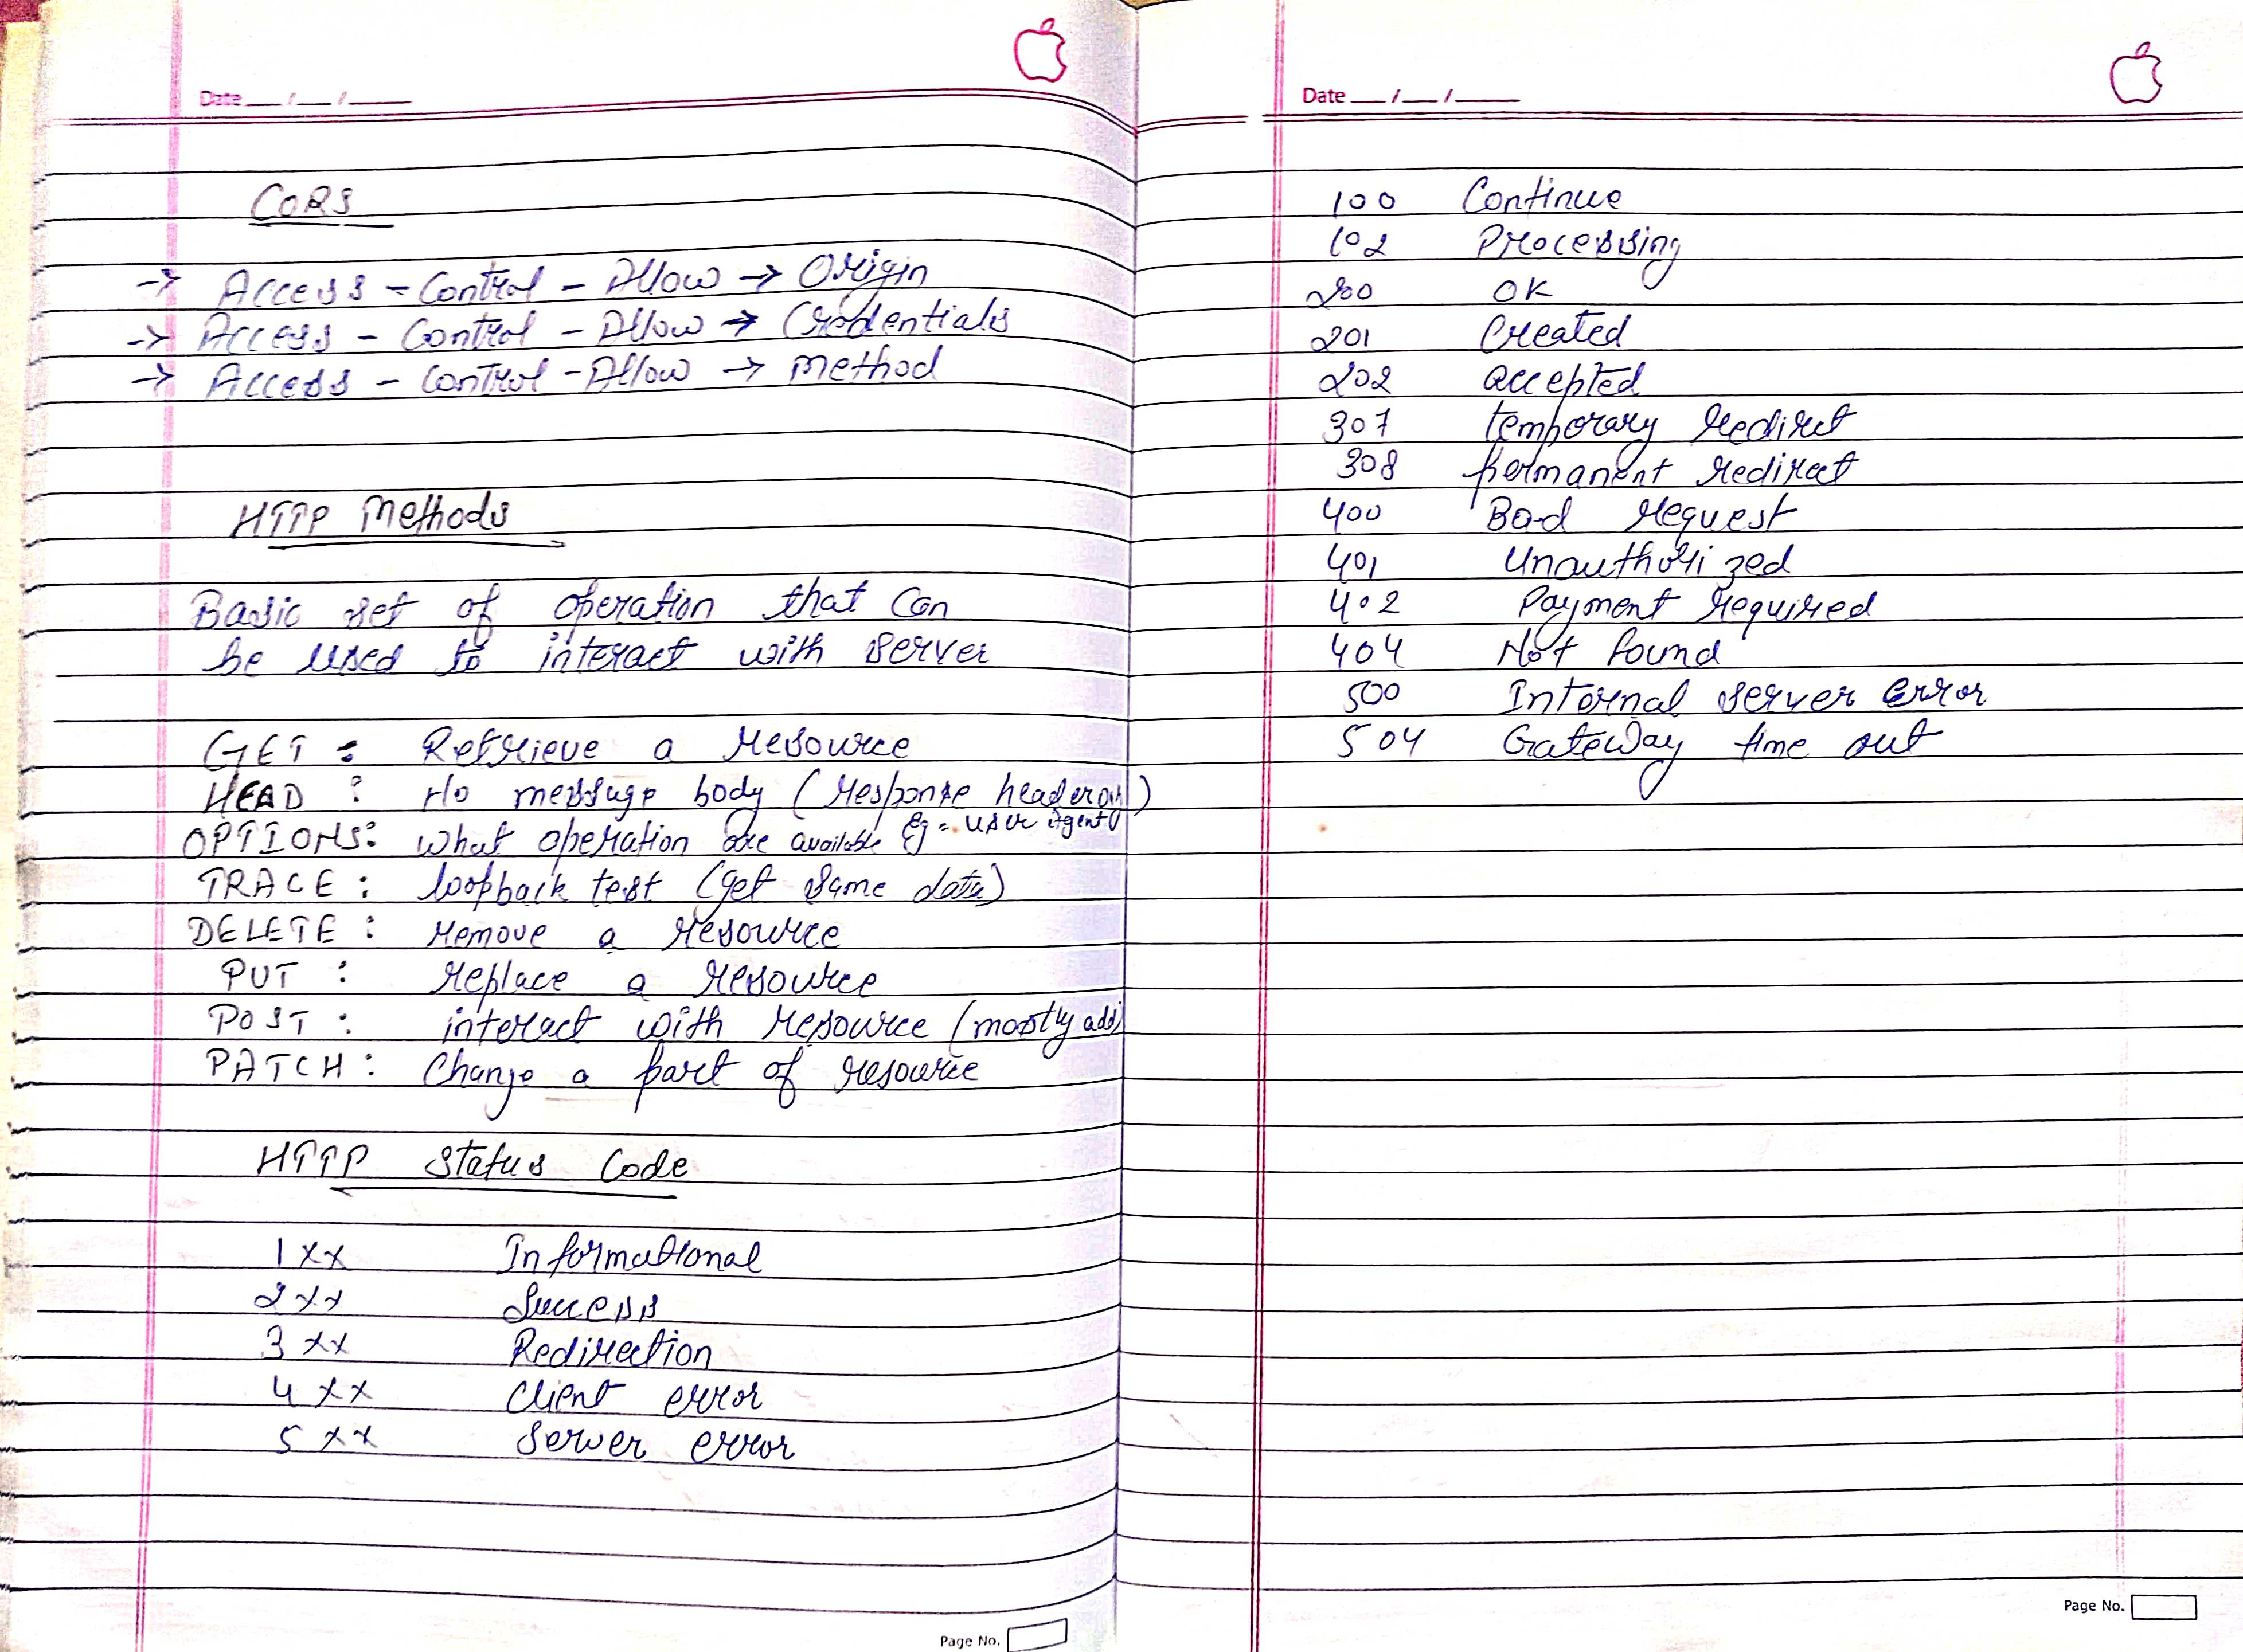 Date __/__/____
CORS
-> Access - Control - Allow -> Origin
-> Access - Control - Allow -> Credentials
-> Access - Control - Allow -> method
HTTP Methods
Basic set of operation that can
be used to interact with server
GET : Retrieve a resource
HEAD : No message body (response headers)
Eg - user agent
OPTIONS: what operation are available
TRACE : loopback test (get same data)
DELETE : remove a resource
PUT : replace a resource
POST : interact with resource (mostly add)
PATCH : Change a part of resource
HTTP Status Code
1xx Informational
2xx Success
3xx Redirection
4xx Client error
5xx Server error
Page No.
Date __/__/____
100 Continue
102 Processing
200 OK
201 Created
202 accepted
307 temporary redirect
308 permanent redirect
400 Bad request
401 Unauthorized
402 Payment required
404 Not found
500 Internal server error
504 Gateway time out
Page No.